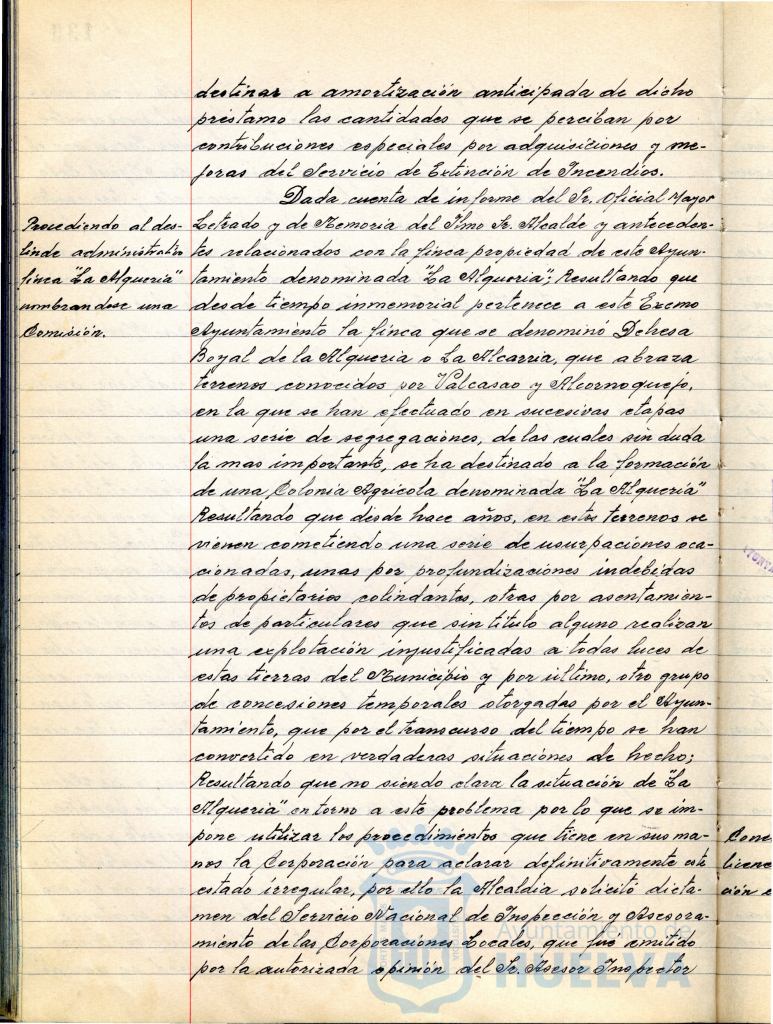 destinar a amortización anticipada de dicho
préstamo las cantidades que se perciban por
contribuciones especiales por adquisiciones y me-
joras del Servicio de Extinción de Incendios.
Dada cuenta de informe del Sr. Oficial Mayor
Letrado y de Memoria del Ilmo Sr. Alcalde y anteceden-
tes relacionados con la finca propiedad de este Ayun-
tamiento denominada "La Alqueria"; Resultando que
desde tiempo inmemorial pertenece a este Excmo
Ayuntamiento la finca que se denominó Dehesa
Boyal de la Alqueria o La Alcarria, que abraza
terrenos conocidos por Valcasao y Alcornoquejo,
en la que se han efectuado en sucesivas etapas
una serie de segregaciones, de las cuales sin duda
la mas importante, se ha destinado a la formación
de una Colonia Agricola denominada "La Alqueria"
Resultando que desde hace años, en estos terrenos se
vienen cometiendo una serie de usurpaciones oca-
cionadas, unas por profundizaciones indebidas
de propietarios colindantes, otras por asentamien-
tos de particulares que sin titulo alguno realizan
una explotación injustificadas a todas luces de
estas tierras del Municipio y por último, otro grupo
de concesiones temporales otorgadas por el Ayun-
tamiento, que por el transcurso del tiempo se han
convertido en verdaderas situaciones de hecho;
Resultando que no siendo clara la situación de "La
Alqueria" en torno a este problema por lo que se im-
pone utilizar los procedimientos que tiene en sus ma-
nos la Corporación para aclarar definitivamente este
estado irregular, por ello la Alcaldia solicitó dicta-
men del Servicio Nacional de Inspección y Asesora-
miento de las Corporaciones Locales, que fue emitido
por la autorizada opinión del Sr. Asesor Inspector
Procediendo al des-
linde administrativo
finca "La Alqueria"
nombrandose una
Comisión.
Conc
licenc
ción e
Ayuntamiento de
HUELVA